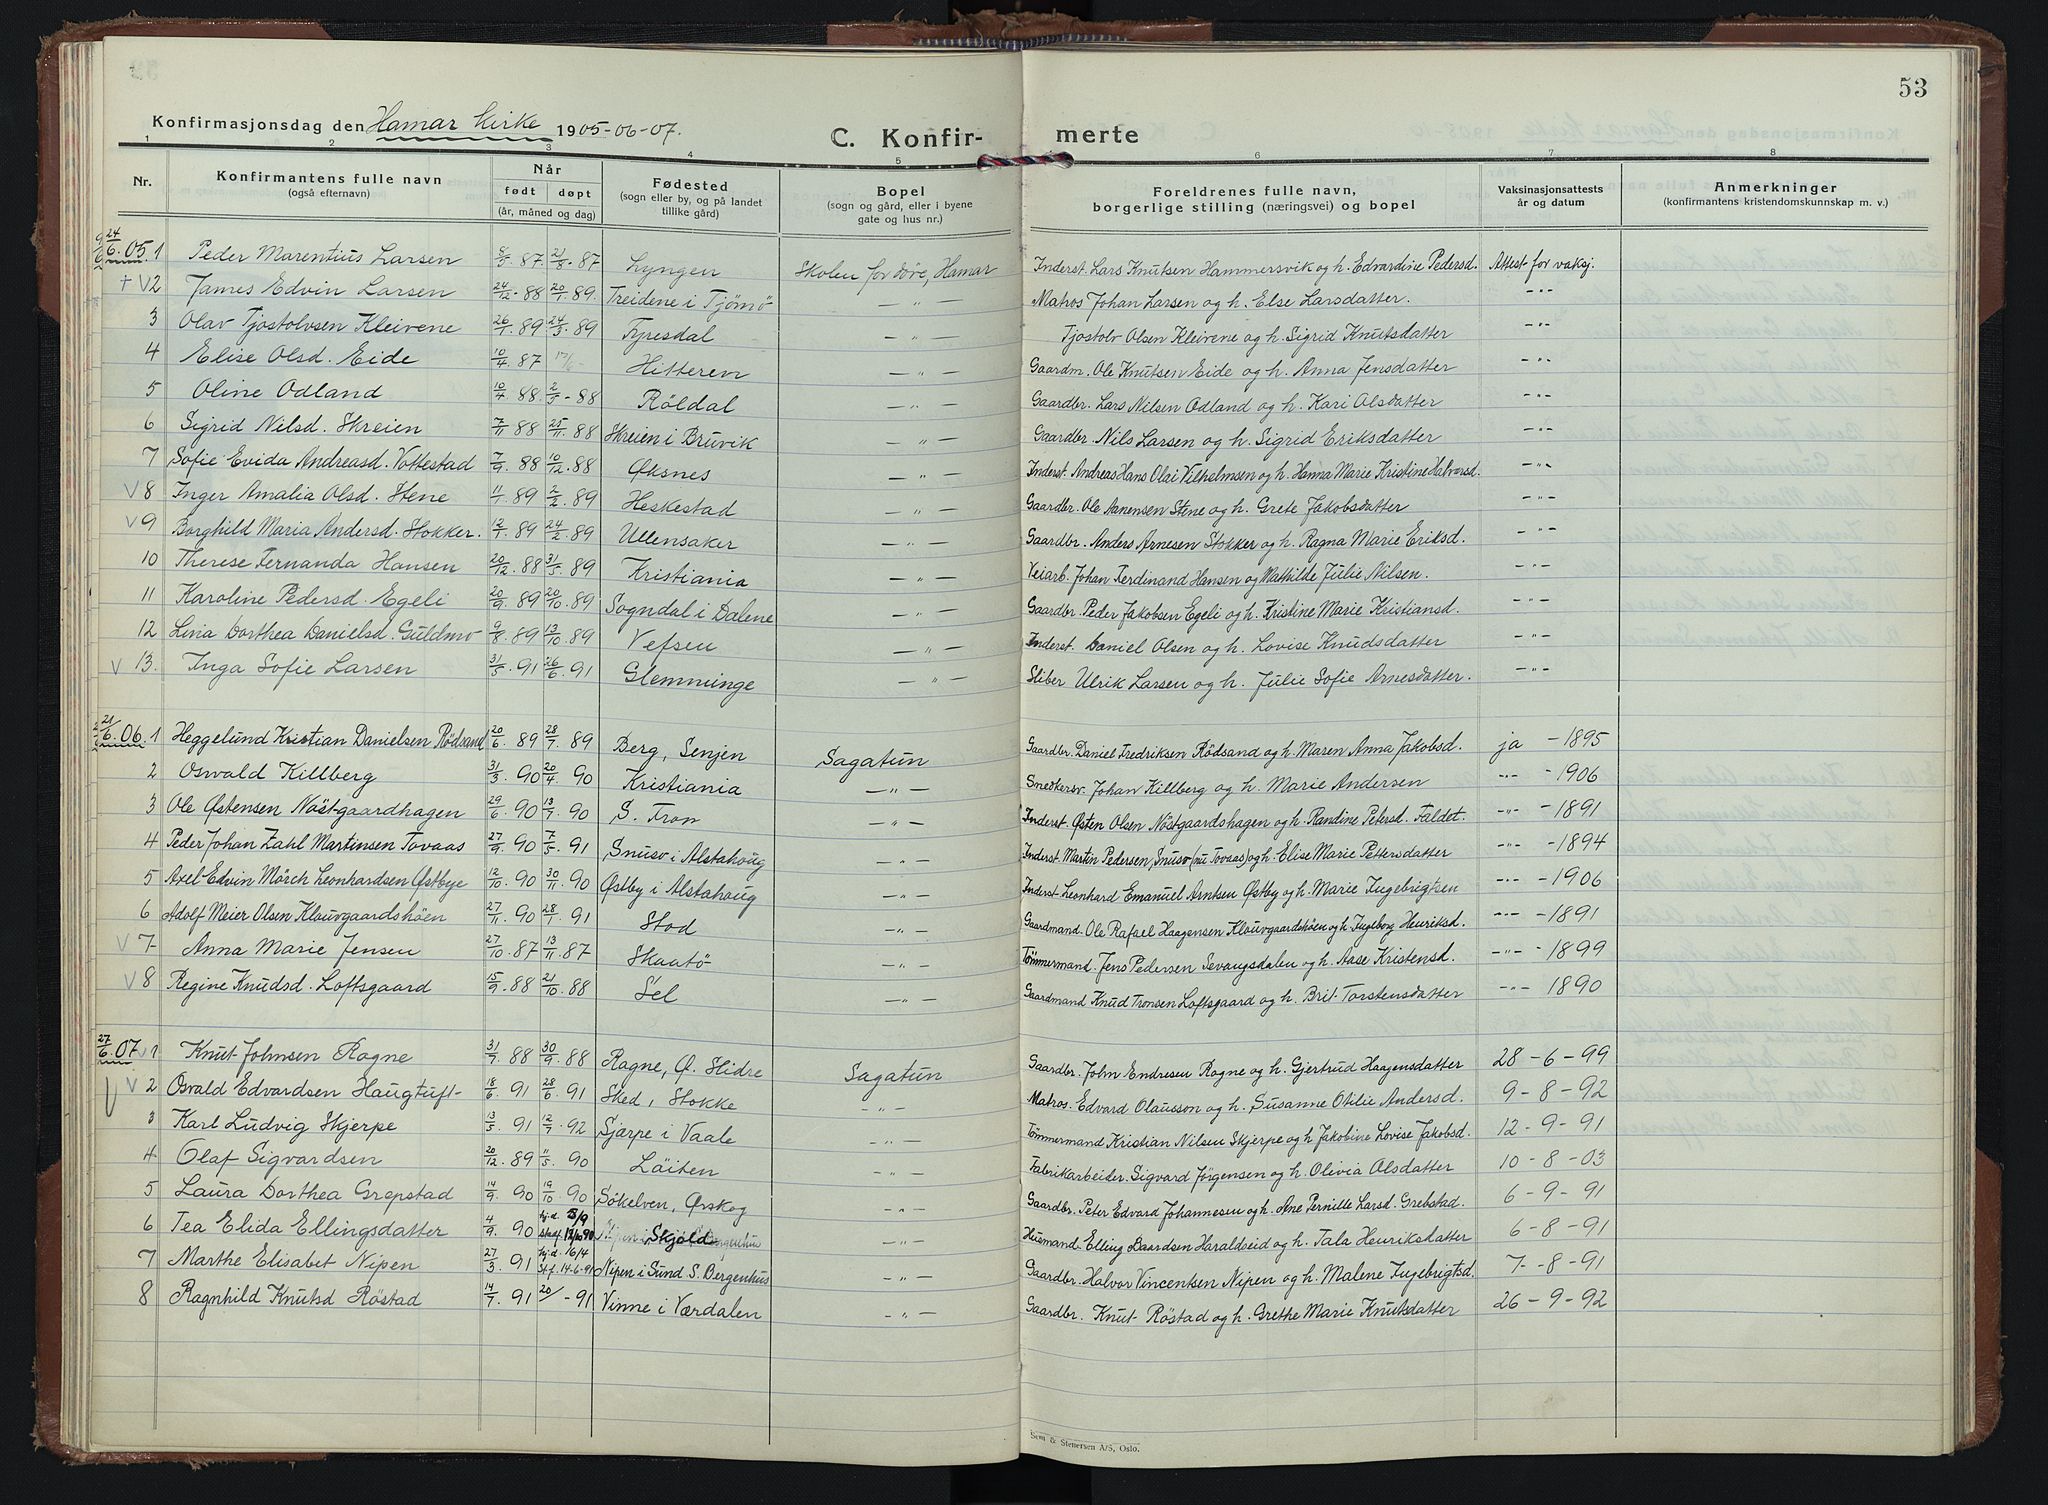 53
Konfirmasjonsdag den Hamar kirke 1905-06-07. C. Konfir- merte
1 2 3 4 5 6 7 8
Nr. Konfirmantens fulle navn (også efternavn) Når født døpt (år, måned og dag) Fødested (sogn eller by, og på landet tillike gård) Bopel (sogn og gård, eller i byene gate og hus nr.) Foreldrenes fulle navn, borgerlige stilling (næringsvei) og bopel Vaksinasjonsattests år og datum Anmerkninger (konfirmantens kristendomskunnskap m. v.)
24/6.05. 1 Peder Marentius Larsen 87. 21/8 - 87 Lyngen Skolen for døve, Hamar Inderst. Lars Knutsen Hammersvik og h. Edvardine Pedersd. Attest for vaksj.
+ V2 James Edvin Larsen 24/12 - 88 20/1. 89. Treidene i Tjømö — " — Matros Johan Larsen og h. Else Larsdatter. — " —
3 Olav Tjostolvsen Kleivene 26/1. 89 24/3. 89 Fyresdal — " — Tjostolv Olsen Kleivene og h. Sigrid Knutsdatter — " —
4 Elise Olsd. Eide 10/4. 87 Hitteren — " — Gaardm. Ole Knutsen Eide og h. Anna Jensdatter — " —
5 Oline Odland 10/4. 88. 2/5 - 88 Röldal — " — Gaardbr. Lars Nilsen Odland og h. Kari Olsdatter — " —
6 Sigrid Nilsd. Skreien 7/11 88 25/11. 88 Skreien i Bruvik — " — Gaardbr. Nils Larsen og h. Sigrid Eriksdatter — " —
7 Sofie Evida Andreasd. Vottestad 7/9. 88 10/12. 88 Øksnes — " — Inderst. Andreas Hans Olai Vilhelmsen og h. Hanna Marie Kristine Halvorsd. — " —
V 8 Inger Amalia Olsd. Stene 11/1. 89 2/2. 89 Heskestad — " — Gaardbr. Ole Aanensen Stene og h. Grete Jakobsdatter — " —
V 9 Borghild Maria Andersd. Stokker. 12/1. 89 24/2. 89 Ullensaker — " — Gaardbr. Anders Arnesen Stokker og h. Ragna Marie Eriksd. — " —
10 Therese Fernanda Hansen 20/12. 88 31/5. 89 Kristiania — " — Veiarb. Johan Ferdinand Hansen og Mathilde Julie Nilsen. — " —
11 Karoline Pedersd. Egeli 20/9. 89 20/10. 89 Sogndal i Dalene — " — Gaardbr. Peder Jakobsen Egeli og h. Kristine Marie Kristiansd. — " —
12 Lina Dorthea Danielsd. Guldmo 9/8. 89 13/10. 89 Vefsen — " — Inderst. Daniel Olsen og h. Lovise Knudsdatter — " —
V 13. Inga Sofie Larsen 31/5. 91 26/6. 91 Glemminge — " — Sliber Ulrik Larsen og h. Julie Sofie Arnesdatter. — " —
21/6.06. 1 Heggelund Kristian Danielsen Rödsand 20/6. 89 28/7. 89 Berg, Senjen Sagatun Gaardbr. Daniel Fredriksen Rödsand og h. Maren Anna Jakobsd. ja - 1895
2 Oswald Killberg 31/3. 90 20/4. 90 Kristiania — " — Snedkersv. Johan Killberg og h. Marie Andersen - " - - 1906
3 Ole Østensen Nöstgaardhagen 29/6. 90 13/7. 90 S. Fron — " — Inderst. Østen Olsen Nöstgaardshagen og h. Randine Petersd. Faldet. - " - - 1891
4 Peder Johan Zahl Martinsen Tovaas 27/9. 90 7/5. 91 Snusv i Alstahoug — " — Inderst. Martin Pedersen, Snusv (nu Tovaas) og h. Elise Marie Pettersdatter - " - - 1894
5 Axel Edvin Mörch Leonhardsen Østbye 12/10. 90 30/11. 90 Østby i Alstahaug — " — Inderst. Leonhard Emanuel Arntsen Østby og h. Marie Ingebrigtsen - " - - 1906
6 Adolf Meier Olsen Klouvgaardshöen 27/11. 90 28/1. 91 Stod — " — Gaardmand. Ole Rafael Haagensen Klouvgaardshöen og h. Ingeborg Henriksd. - " - - 1891
V 7 Anna Marie Jensen 27/10. 87 13/11. 87 Skaatö — " — Tömmermand. Jens Pedersen Sevangsdalen og h. Aase Kristensd. - " - - 1899
V 8 Regine Knudsd. Loftsgaard 15/9. 88 21/10. 88 Sel — " — Gaardmand Knud Tronsen Loftsgaard og h. Brit Torstensdatter - " - 1890
27/6.07 V 1 Knut Johnsen Rogne 31/7. 88 30/9. 88 Rogne, Ø. Slidre Sagatun Gaardbr. John Endresen Rogne og h. Gjertrud Haagensdatter 28 - 6 - 99
V 2 Osvald Edvardsen Haugtuft 18/6. 91 28/6. 91 Sked, Stokke - " - Matros. Edvard Olausson og h. Susanne Otilie Andersd. 9 - 8 - 92
3 Karl Ludvig Skjerpe 13/5. 91 12/7. 92 Sjærpe i Vaale - " - Tömmermand Kristian Nilsen Skjerpe og h. Jakobine Lovise Jakobsd. 12 - 9 - 91
4 Olaf Sigvardsen 20/12. 89 11/5. 90 Löiten - " - Fabrikarbeider. Sigvard Jørgensen og h. Olivia Olsdatter 10 - 8 - 03
5 Laura Dorthea Grepstad 14/9. 90 19/10. 90 Sökelven, Ørskog - " - Gaardbr. Peter Edvard Johannesen og h. Ane Pernille Larsd. Grebstad. 6 - 9 - 91
6 Tea Elida Ellingsdatter 4/9. 90 hj.d. 5/9 stadf. 12/10 90 Skjold - " - Husmand. Elling Baardsen Haraldseid og h. Tala Henriksdatter 6 - 8 - 91
7 Marthe Elisabet Nipen 27/3. 91 hj.d. 16/4 Stf. 14-6-91 Nipen i Sund S. Bergenhus - " - Gaardbr. Halvor Vincentsen Nipen og h. Malene Ingebrigtsd. 7 - 8 - 91
8 Ragnhild Knutsd Röstad 14/7. 91 20/ - 91 Vinne i Værdalen - " - Gaardbr. Knut Röstad og h. Grethe Marie Knutsdatter 26 - 9 - 92
Sem & Stenersen A/S, Oslo.